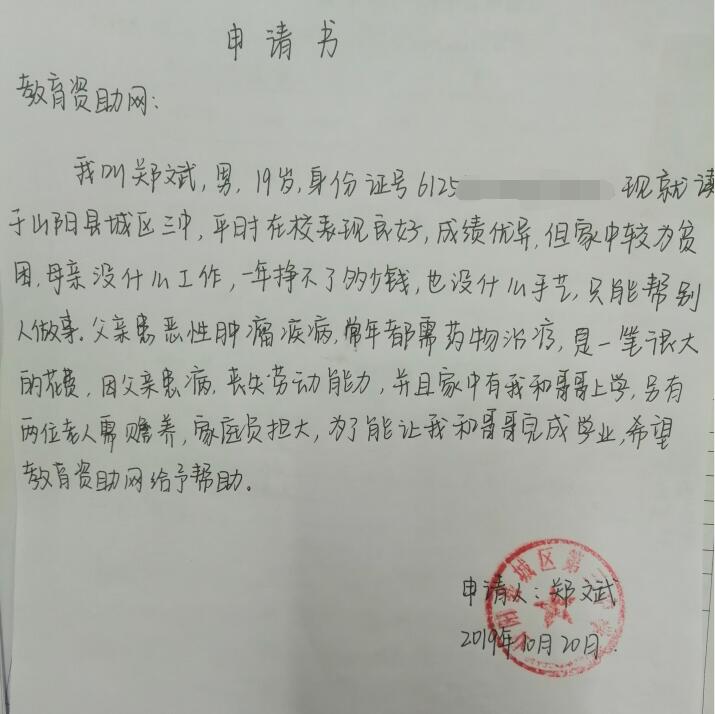 申请书
教育资助网：
我叫郑文武，男，19岁，身份证号6125 现就读
于山阳县城区三中，平时在校表现良好，成绩优异，但家中较为贫
困，母亲没什么工作，一年挣不了多少钱，也没什么手艺，只能帮别
人做事。父亲患恶性肿瘤疾病，常年都需药物治疗，是一笔很大
的花费，因父亲患病，丧失劳动能力，并且家中有我和哥哥上学，另有
两位老人需赡养，家庭负担大，为了能让我和哥哥完成学业，希望
教育资助网给予帮助。
申请人：郑文武
2019年10月20日.
城区第